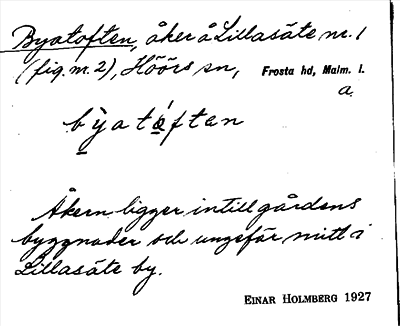 Byatoften, åker å Lillasäte nr. 1
(fig. m. 2), Höörs sn, Frosta hd, Malm. l.
a.
bỳatáften
Åkern ligger intill gårdens
byggnader och ungefär mitt i
Lillasäte by.
EINAR HOLMBERG 1927